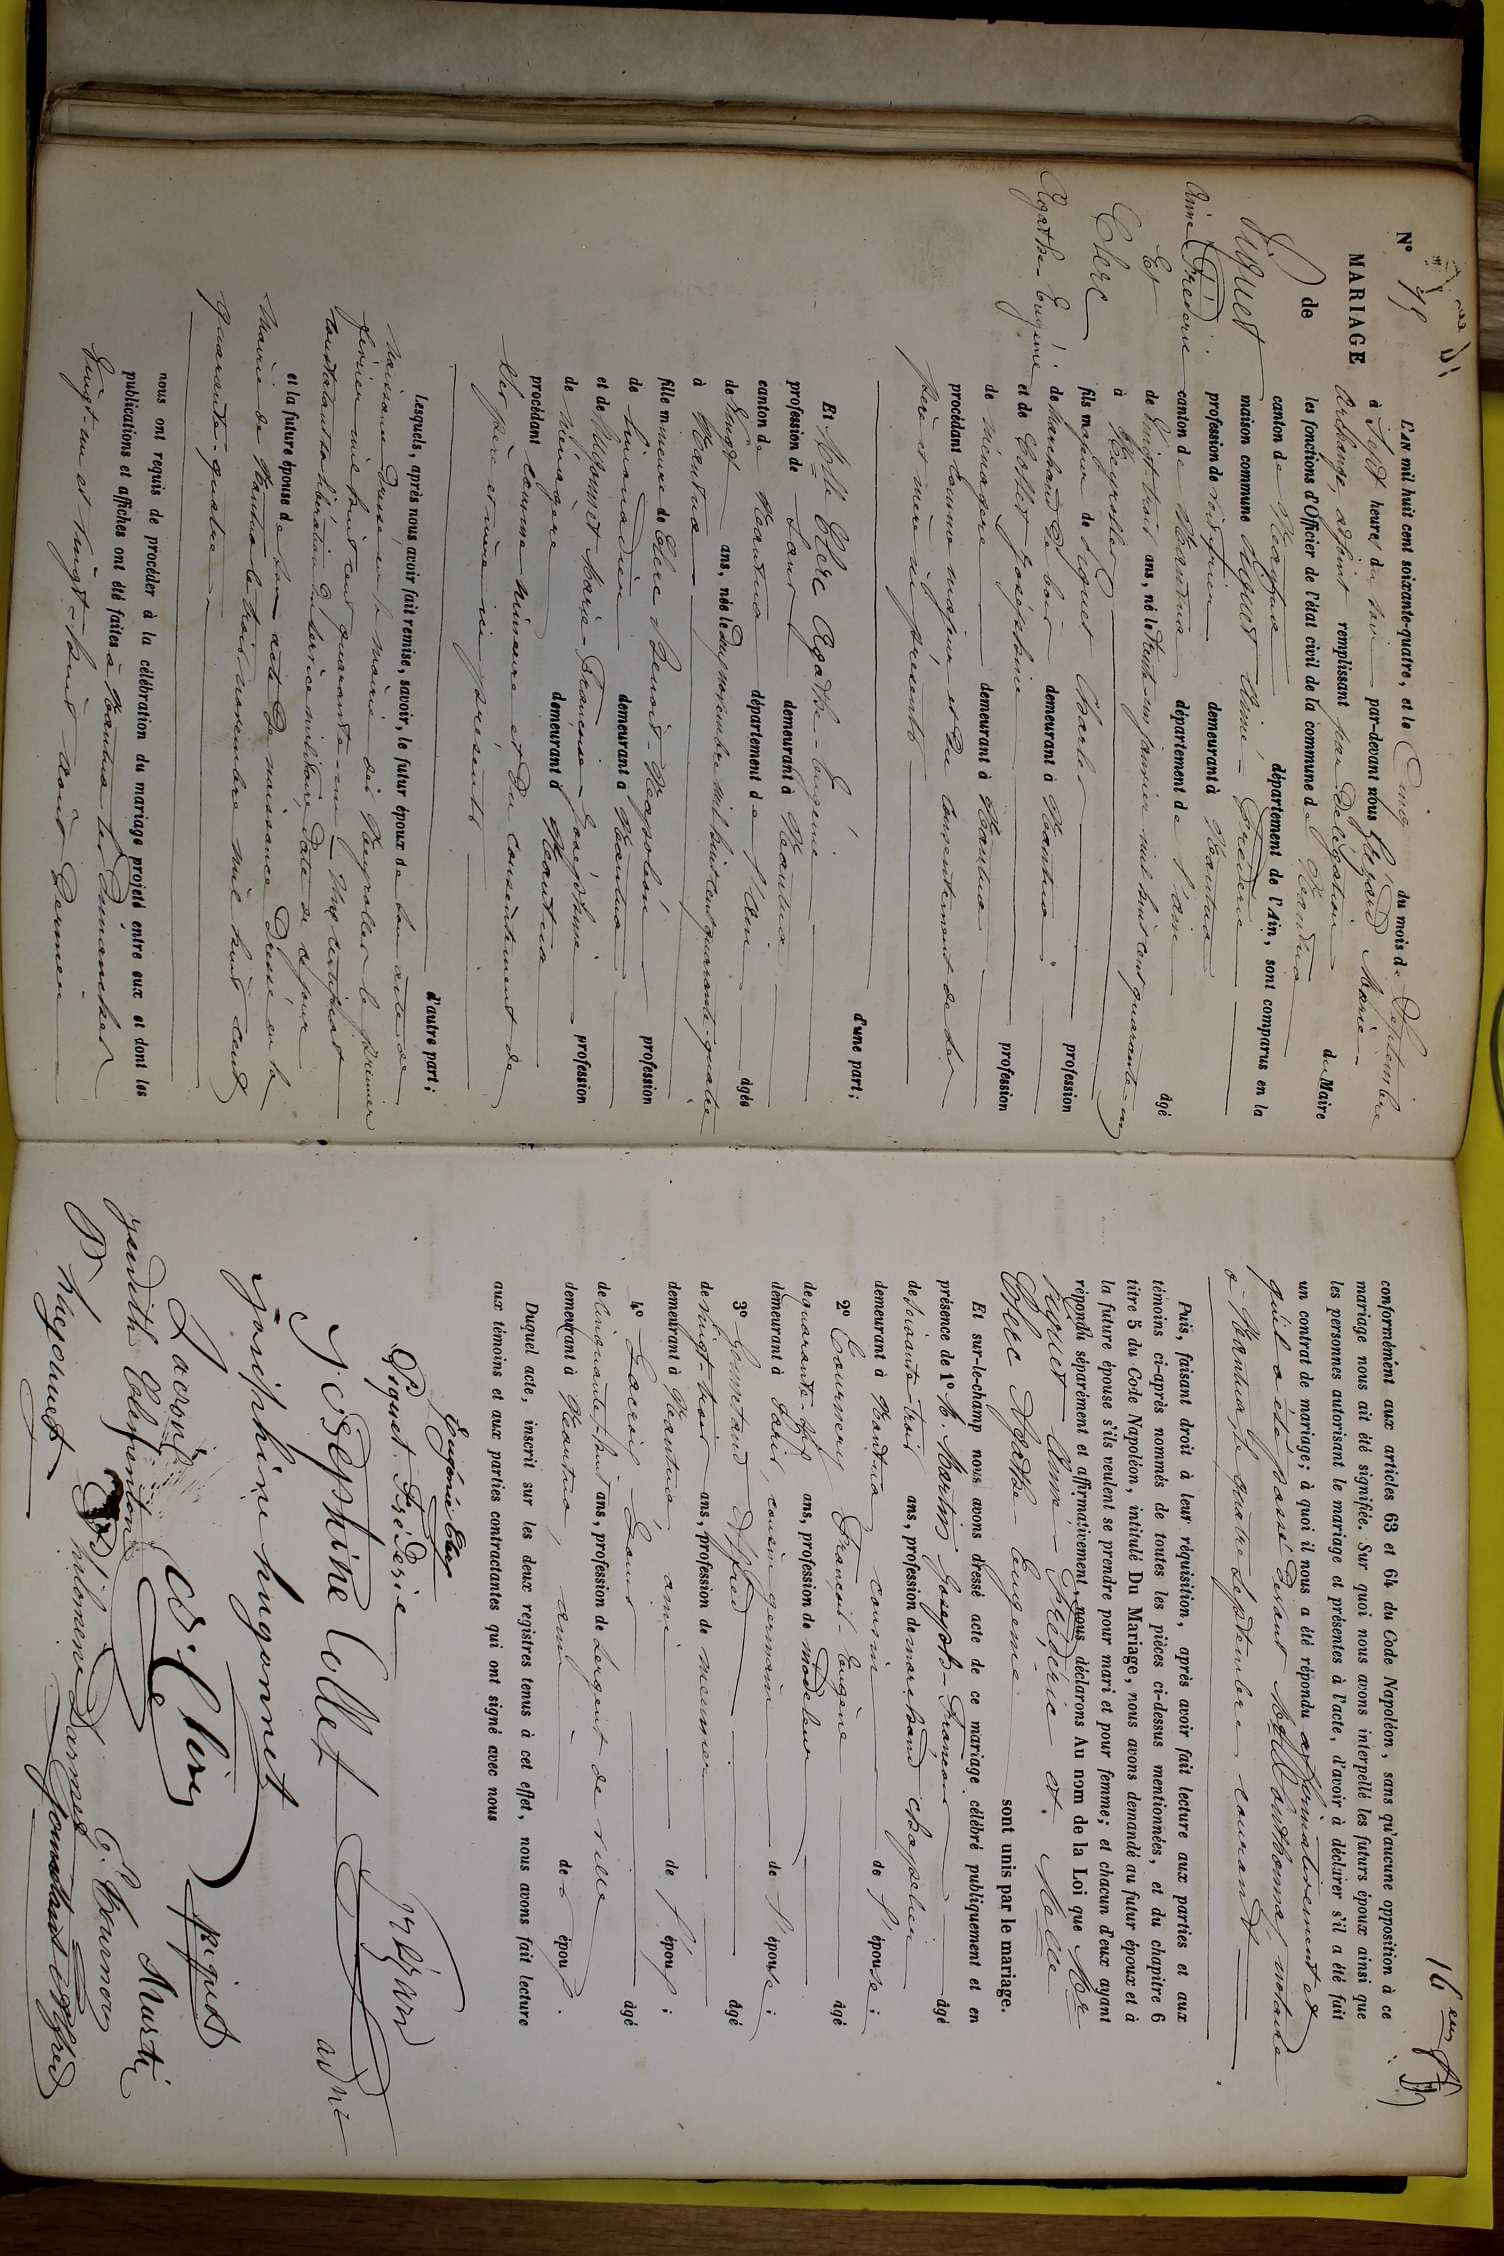 N° 15
MARIAGE
de
Piguet
Aimé Frédéric
Et
Clerc
Agathe-Eugénie
L'AN mil huit cent soixante-quatre, et le Cinq du mois de Septembre
à Sept heures du soir par-devant nous Marie
Archange, adjoint remplissant par délégation du Maire
les fonctions d'Officier de l'état civil de la commune de Nantua
canton de Nantua département de l'Ain, sont comparus en la
maison commune Piguet Aimé-Frédéric
profession de demeurant à Nantua
canton de Nantua département de l'ain âgé
de Vingt trois ans, né le trente-un janvier mil huit cent quarante-un
à Meyrolles
fils majeur de Piguet Charles profession
de Marchand de bois demeurant à Nantua
et de Collet Joséphine profession
de ménagère demeurant à Nantua
procédant comme majeur et du consentement de ses
père et mère ici présents
d'une part;
Et Melle Clerc Agathe-Eugénie
profession de Sans demeurant à Nantua
canton de Nantua département de l'ain âgée
de Vingt ans, née le deux novembre mil huit cent quarante-quatre
à Nantua
fille mineure de Clerc Benoit-Napoléon profession
de limonadier demeurant à Nantua
et de Hugonnet Marie-Françoise-Joséphine profession
de Ménagère demeurant à Nantua
procédant comme mineure et du consentement de
ses père et mère ici présents
d'autre part;
Lesquels, après nous avoir fait remise, savoir, le futur époux de son acte de
naissance dressé en la mairie des Meyrolles le premier
février mil huit cent quarante-un, Un certificat
constatant sa libération du service militaire daté de ce jour
et la future épouse de son acte de naissance dressé en la
Mairie de Nantua le trois novembre mil huit cent
quarante-quatre
nous ont requis de procéder à la célébration du mariage projeté entre eux et dont les
publications et affiches ont été faites à Nantua les Dimanches
Vingt-un et vingt-huit août dernier
conformément aux articles 63 et 64 du Code Napoléon, sans qu'aucune opposition à ce
mariage nous ait été signifiée. Sur quoi nous avons interpellé les futurs époux ainsi que
les personnes autorisant le mariage et présentes à l'acte, d'avoir à déclarer s'il a été fait
un contrat de mariage; à quoi il nous a été répondu affirmativement et
qu'il a été passé devant notaire
à Nantua, le quatre Septembre courant
Puis, faisant droit à leur réquisition, après avoir fait lecture aux parties et aux
témoins ci-après nommés de toutes les pièces ci-dessus mentionnées, et du chapitre 6
titre 5 du Code Napoléon, intitulé Du Mariage, nous avons demandé au futur époux et à
la future épouse s'ils veulent se prendre pour mari et pour femme; et chacun d'eux ayant
répondu séparément et affirmativement, nous déclarons Au nom de la Loi que Mr
Piguet Aimé-Frédéric et Melle
Clerc Agathe-Eugénie sont unis par le mariage.
Et sur-le-champ nous avons dressé acte de ce mariage célébré publiquement et en
présence de 1° M. Martin Joseph-François âgé
de soixante-trois ans, profession de marchand chapelier
demeurant à Nantua, cousin de l'épouse;
2° Tournery François-Eugène âgé
de quarante-sept ans, profession de modeleur
demeurant à Paris, cousin germain de l'épouse;
3° Gometand Alfred âgé
de Vingt-trois ans, profession de menuisier
demeurant à Nantua, ami de l'époux;
4° Lacroix Louis âgé
de cinquante-huit ans, profession de Sergent de ville
demeurant à Nantua, ami de l'époux.
Duquel acte, inscrit sur les deux registres tenus à cet effet, nous avons fait lecture
aux témoins et aux parties contractantes qui ont signé avec nous
Eugénie Clerc
Piguet Frédéric
Joséphine Collet
joséphine hugonnet
piguet
Lacroix
Martin
judith
Philomène
E. Tournery
gometand Alfred
hugonnet